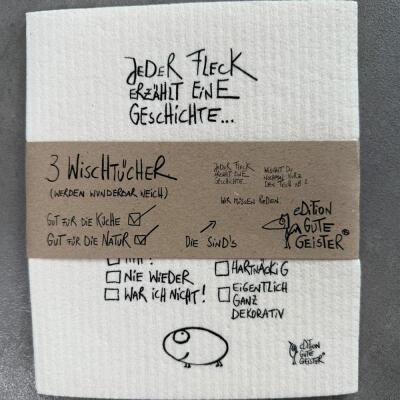 JEDER FLECK
ERZÄHLT EINE
GESCHICHTE...
3 WISCHTÜCHER
(WERDEN WUNDERBAR WEICH)
GUT FÜR DIE KÜCHE
GUT FÜR DIE NATUR
JEDER FLECK
ERZÄHLT EINE
GESCHICHTE...
WIR MÜSSEN REDEN
DIE SIND'S
EDITION
GUTE
GEISTER®
NIE WIEDER
WAR ICH NICHT!
HARTNÄCKIG
EIGENTLICH
GANZ
DEKORATIV
EDITION
GUTE
GEISTER